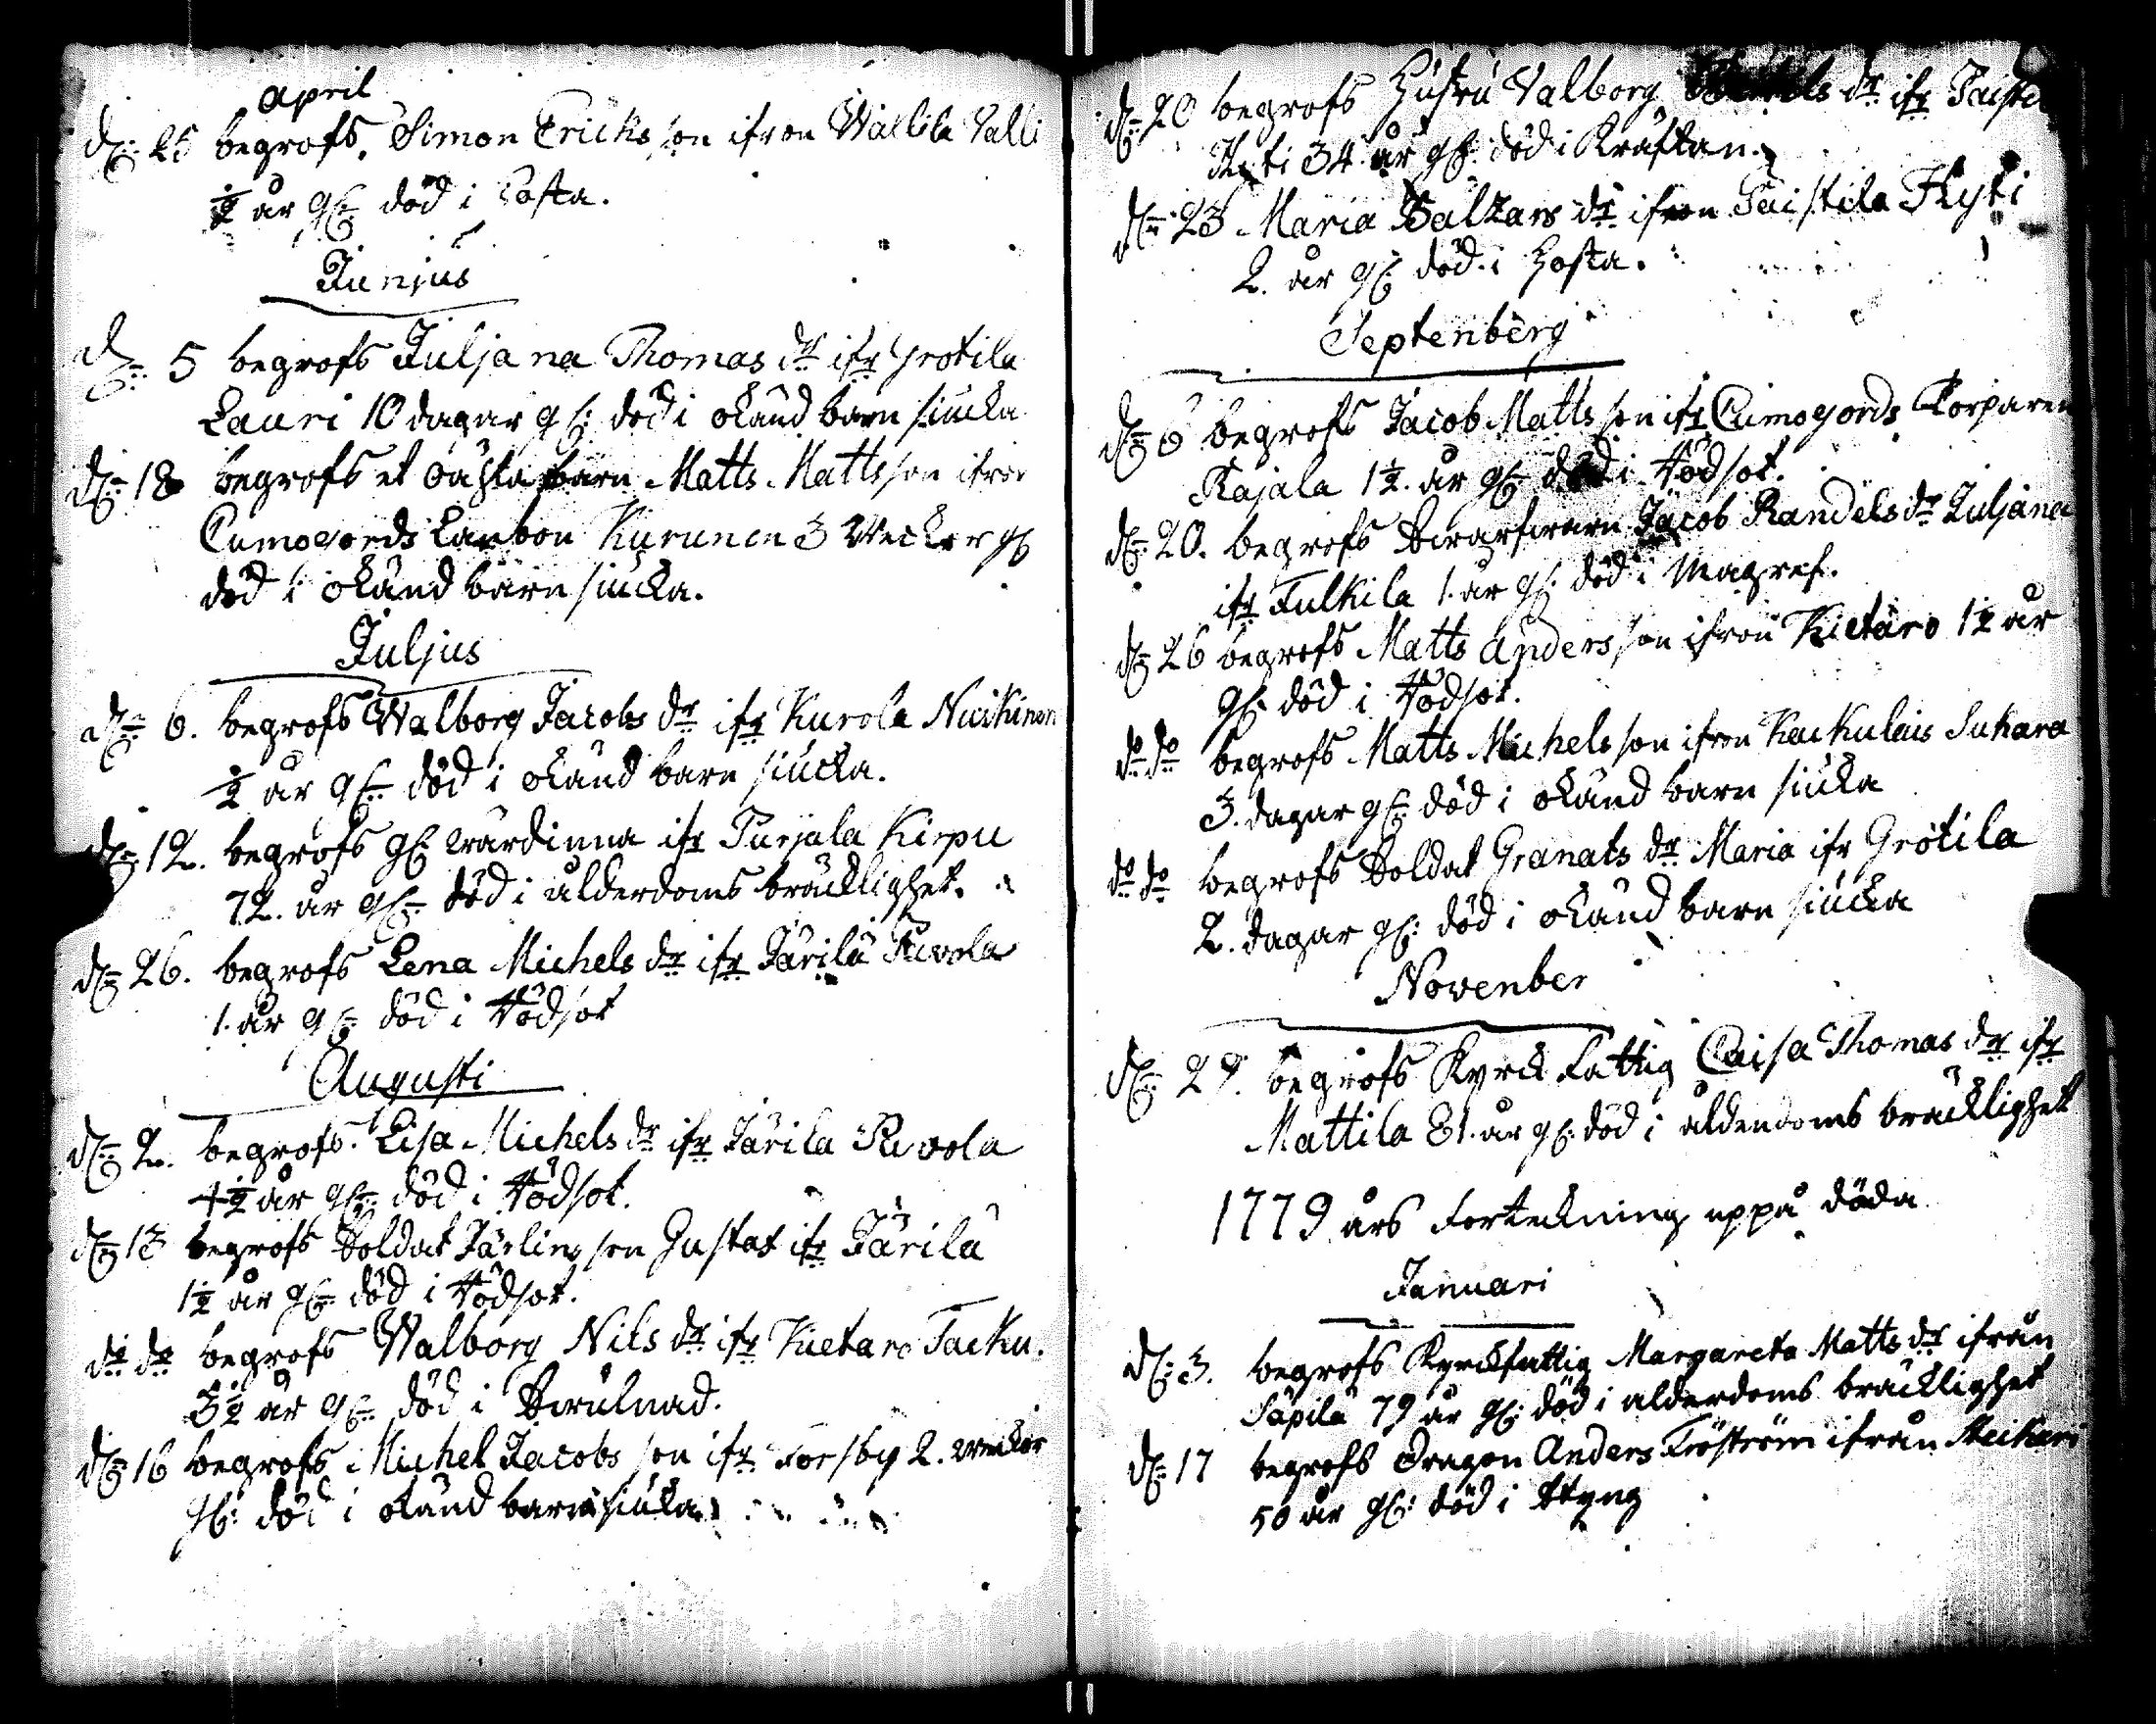 April
d: 25 begrofs Simon Ericks son ifron Wallila Valli
½ år gl: död i Hosta.
Junjus
d: 5 begrofs Juljana Thomas dr ifr Grotila
Lauri 10 dagar gl: död i okänd barn siucka
d: 18 begrofs et oächta barn Matts Matts son ifron
Cumogords Kurunen 3 Weckor gl
död i okänd barn siucka.
Juljus
d: 6. begrofs Walborg Jacobs dr ifr Kurola
½ år gl: död i okänd barn siucka.
d: 12. begrofs gl wärdinna ifr Purjala Kirpu
72. år gl: död i ålderdoms bräcklighet.
d: 26. begrofs Lena Michels dr ifr Järilä
1. år gl: död i Rödsot
Augusti
d: 2. begrofs. Lisa Michels dr ifr Järila
4½ år gl: död i Rödsot.
d: 13 begrofs Soldat Järlings son Gustaf ifr Järilä
1½ år gl: död i Rödsot.
do do begrofs Walborg Nils dr ifr Kietaro Tacku.
3½ år gl: död i Swulnad.
d: 16 begrofs Michel Jacobs son ifr Forsby 2. weckor
gl: död i okänd barn siucka.
d: 20 begrofs Hustru Valborg dr ifr
34 år gl: död i Kräftan.
d: 23 Maria Balzars dr ifron Paistila Flyti
2. år gl: död i Hosta.
Septenberg
d: 6 begrofs Jacob Matts son ifr Cumogords Torparen
Rajala 1½. år gl: död i Rödsot.
d: 20. begrofs Jacob Randels dr Juljana
ifr Fulkila 1. år gl: död i Magref.
d: 26 begrofs Matts Anders son ifron Kietäro 1½ år
gl: död i Rödsot.
do do begrofs Matts Michels son ifron Kaukulais Sukara
3. dagar gl: död i okänd barn siucka
do do begrofs Soldat Granats dr Maria ifr Grötila
2. dagar gl: död i okänd barn siucka
Novenber
d: 29. begrofs Kyrck Fattig Caisa Thomas dr ifr
Mattila 81. år gl: död i ålderdoms bräcklighet
1779 års Forteckning uppå döda
Januari
d: 3. begrofs Kyrckfattig Margareta Matts dr ifrån
Säpilä 79 år gl: död i ålderdoms bräcklighet
d: 17 begrofs Dragon Anders Fröström ifrån
50 år gl: död i Styng